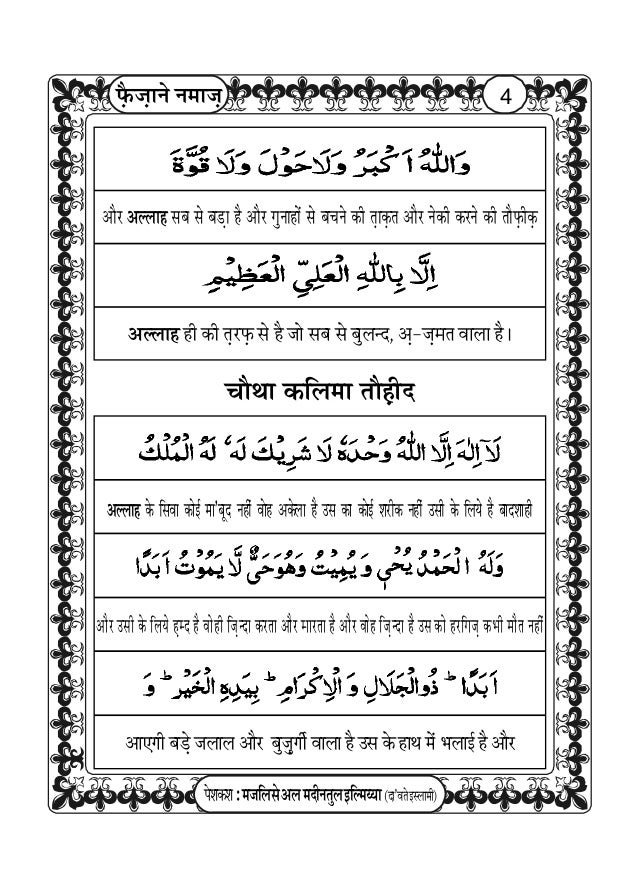 फ़ैज़ाने नमाज़
4
وَاللّٰهُ اَكْبَرُ وَلَا حَوْلَ وَلَا قُوَّةَ
और अल्लाह सब से बड़ा है और गुनाहों से बचने की त़ाक़त और नेकी करने की तौफ़ीक़
اِلَّا بِاللّٰهِ الْعَلِيِّ الْعَظِيْمِ
अल्लाह ही की त़रफ़ से है जो सब से बुलन्द, अ़-ज़मत वाला है।
चौथा कलिमा तौह़ीद
لَآ اِلٰهَ اِلَّا اللّٰهُ وَحْدَهٗ لَا شَرِيْكَ لَهٗ لَهُ الْمُلْكُ
अल्लाह के सिवा कोई मा'बूद नहीं वोह अकेला है उस का कोई शरीक नहीं उसी के लिये है बादशाही
وَلَهُ الْحَمْدُ يُحْيٖ وَ يُمِيْتُ وَهُوَحَيٌّ لَّا يَمُوْتُ اَبَدًا
और उसी के लिये ह़म्द है वोही ज़िन्दा करता और मारता है और वोह ज़िन्दा है उस को हरगिज़ कभी मौत नहीं
اَبَدًا ؕ ذُوالْجَلَالِ وَ الْاِكْرَامِ ؕ بِيَدِهِ الْخَيْرُ ؕ وَ
आएगी बड़े जलाल और बुज़ुर्गी वाला है उस के हाथ में भलाई है और
पेशकश : मजलिसे अल मदीनतुल इल्मिय्या (दा'वते इस्लामी)